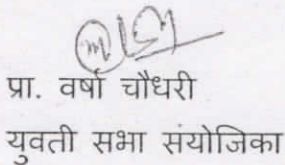 प्रा. वर्षा चौधरी
युवती सभा संयोजिका